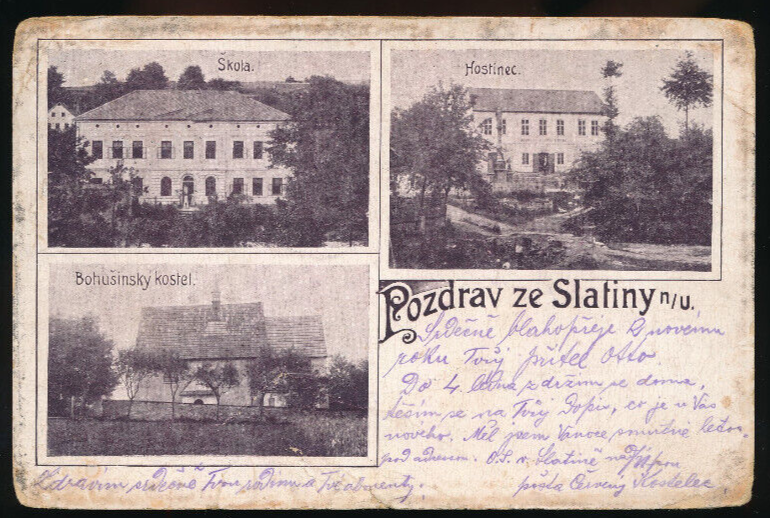 Škola.
Hostinec.
Bohušinsky kostel.
Pozdrav ze Slatiny n/u.
Srdečně blahopřeje k novému
roku Tvůj přítel Otto.
Do 4. ledna zdržím se doma,
těším se na Tvůj dopis, co je u Vás
nového. Měl jsem Vánoce smutné letos.
pod adresou. O.S. v Slatině nad Úpou
pošta Červený Kostelec.
Zdravím srdečně Tvou rodinu a